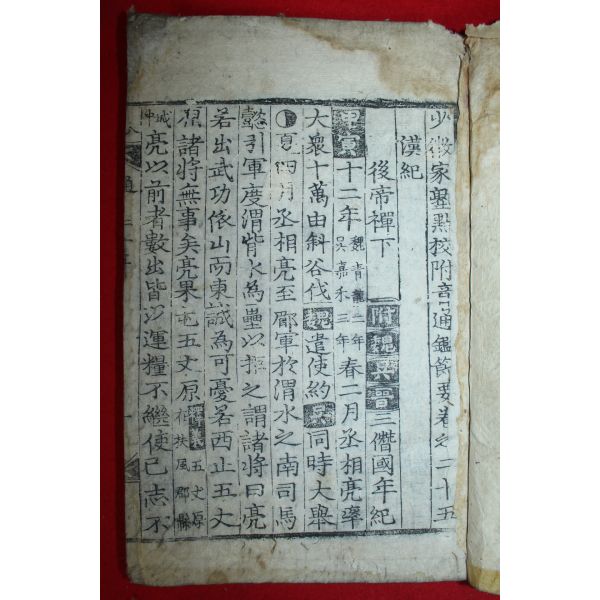 少微家塾點校附音通鑑節要卷之二十五
漢紀
後帝禪下 附魏吳晉三僭國年紀
甲寅十二年魏青龍二年吳嘉禾三年春二月丞相亮率
大衆十萬由斜谷伐魏遣使約吳同時大舉
夏四月丞相亮至郿軍於渭水之南司馬
懿引軍度渭背水為壘以拒之謂諸將曰亮
若出武功依山而東誠為可憂若西止五丈
原諸將無事矣亮果屯五丈原釋義五丈原在扶風郿縣
亮以前者數出皆以運糧不繼使己志不